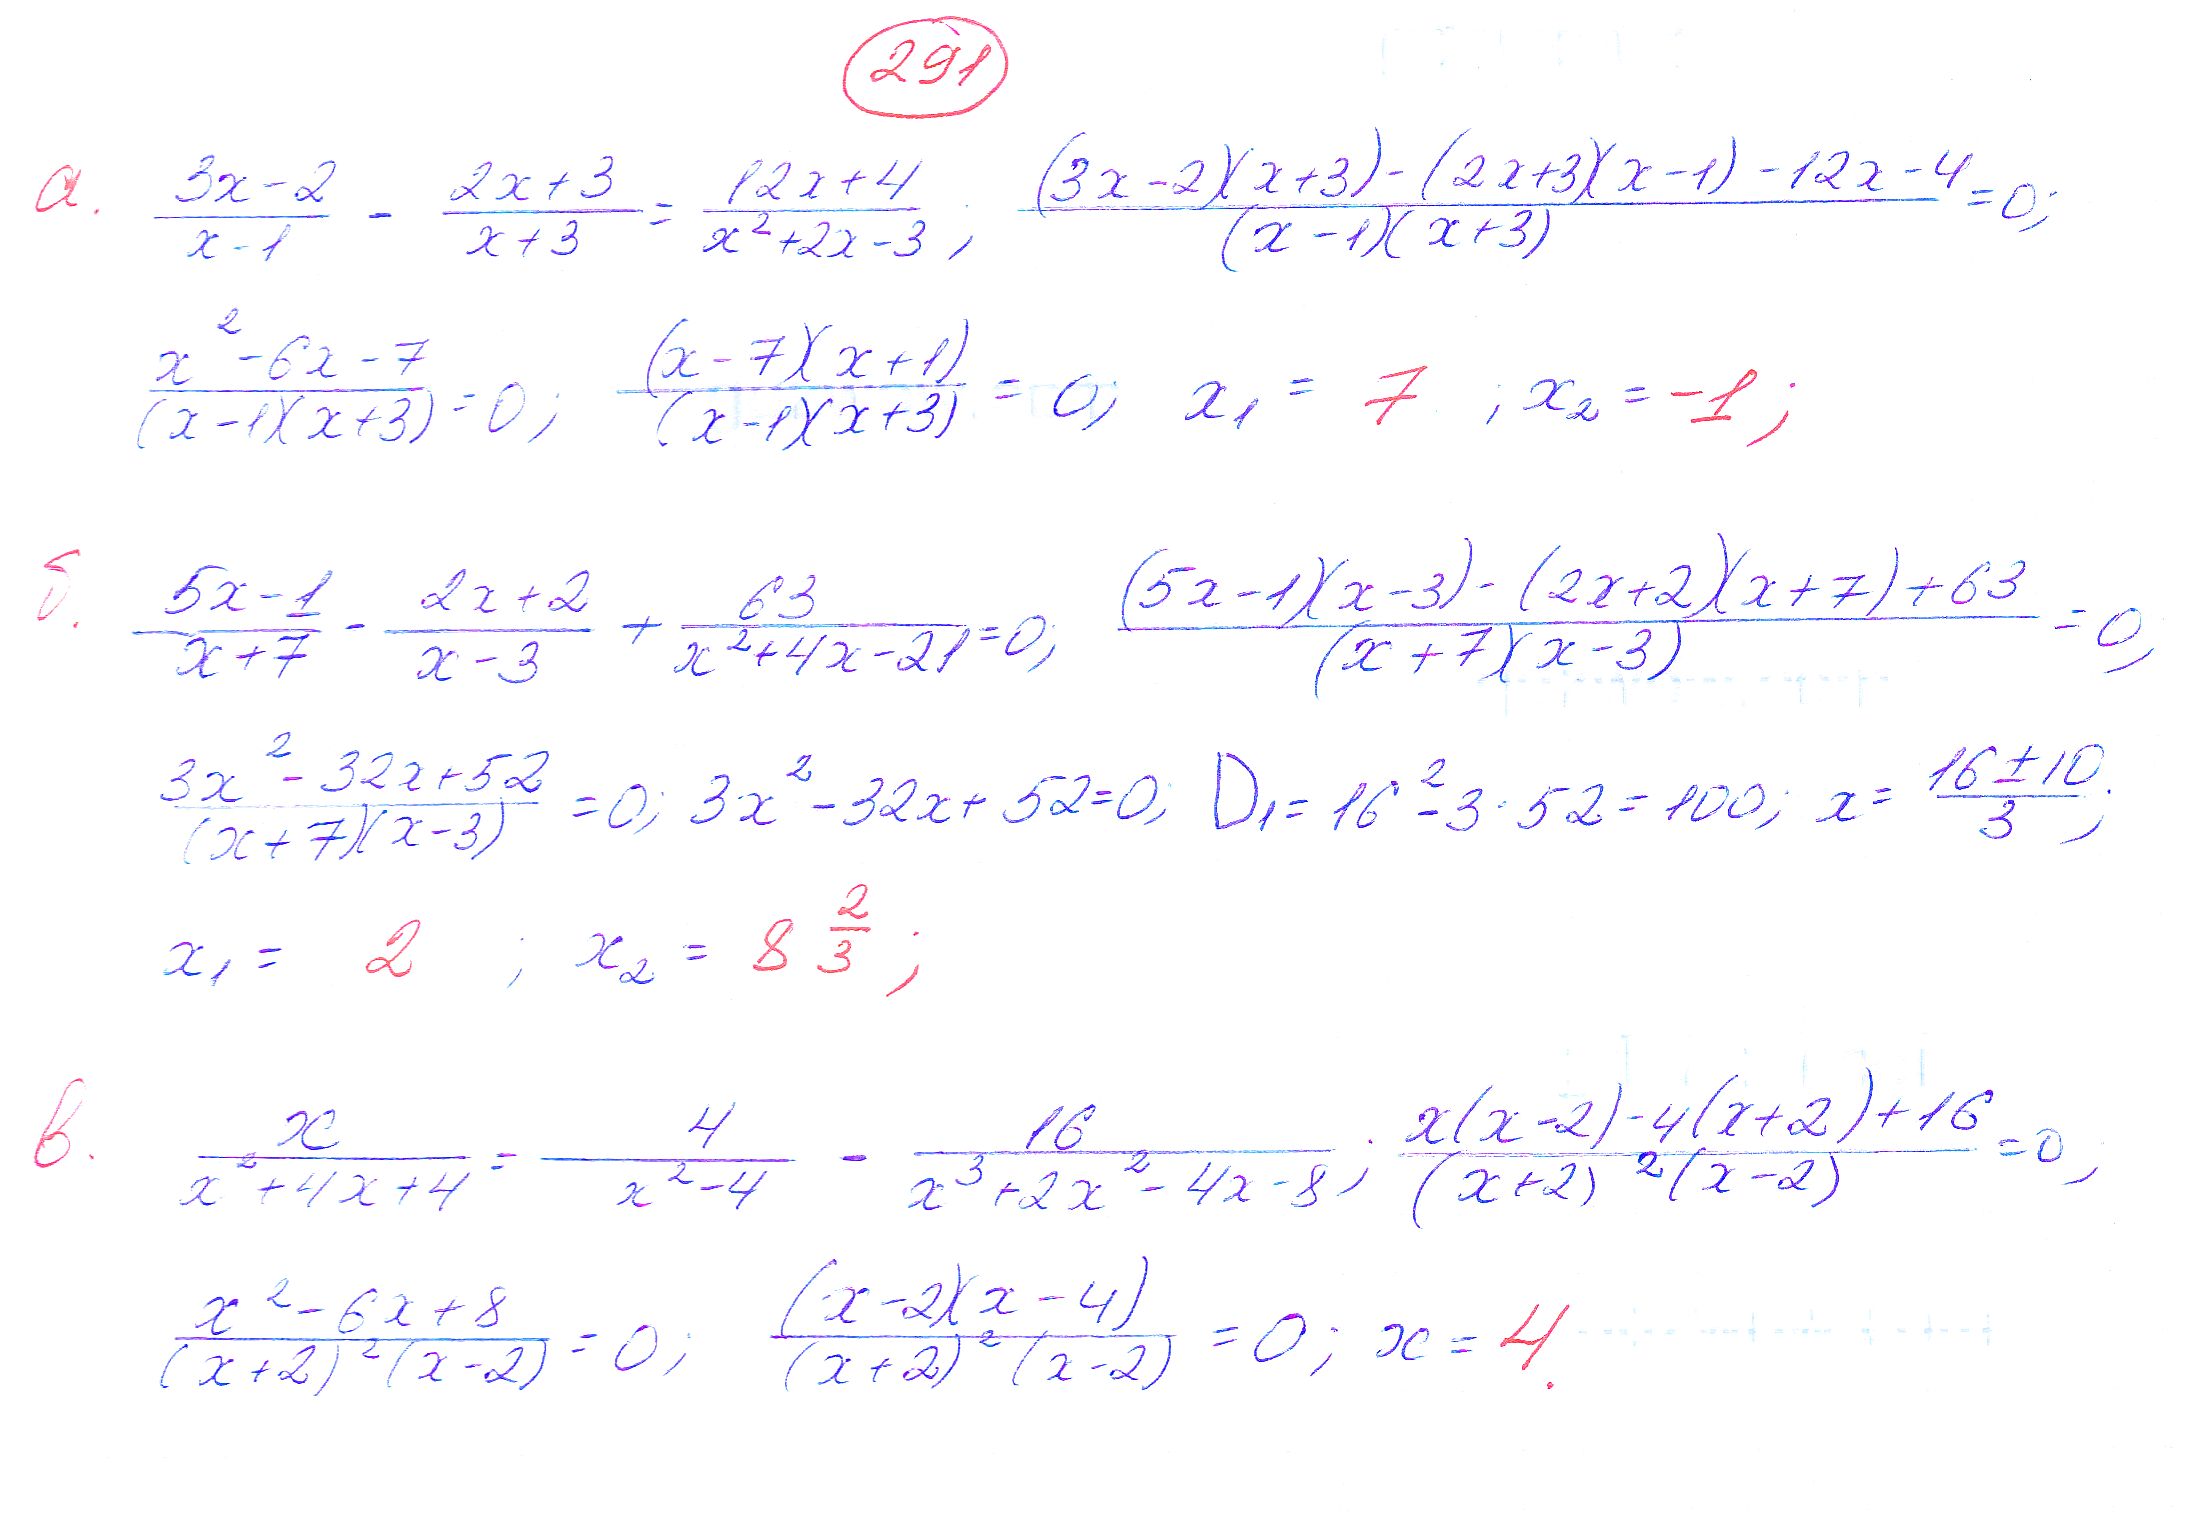 291
а. (3x-2)/(x-1) - (2x+3)/(x+3) = (12x+4)/(x²+2x-3); ((3x-2)(x+3)-(2x+3)(x-1)-12x-4)/((x-1)(x+3)) = 0;
(x²-6x-7)/((x-1)(x+3)) = 0; ((x-7)(x+1))/((x-1)(x+3)) = 0; x₁ = 7; x₂ = -1;
б. (5x-1)/(x+7) - (2x+2)/(x-3) + 63/(x²+4x-21) = 0; ((5x-1)(x-3)-(2x+2)(x+7)+63)/((x+7)(x-3)) = 0;
(3x²-32x+52)/((x+7)(x-3)) = 0; 3x²-32x+52=0; D₁ = 16²-3·52 = 100; x = (16±10)/3;
x₁ = 2; x₂ = 8 2/3;
в. x/(x²+4x+4) = 4/(x²-4) - 16/(x³+2x²-4x-8); (x(x-2)-4(x+2)+16)/((x+2)²(x-2)) = 0;
(x²-6x+8)/((x+2)²(x-2)) = 0; ((x-2)(x-4))/((x+2)²(x-2)) = 0; x = 4.